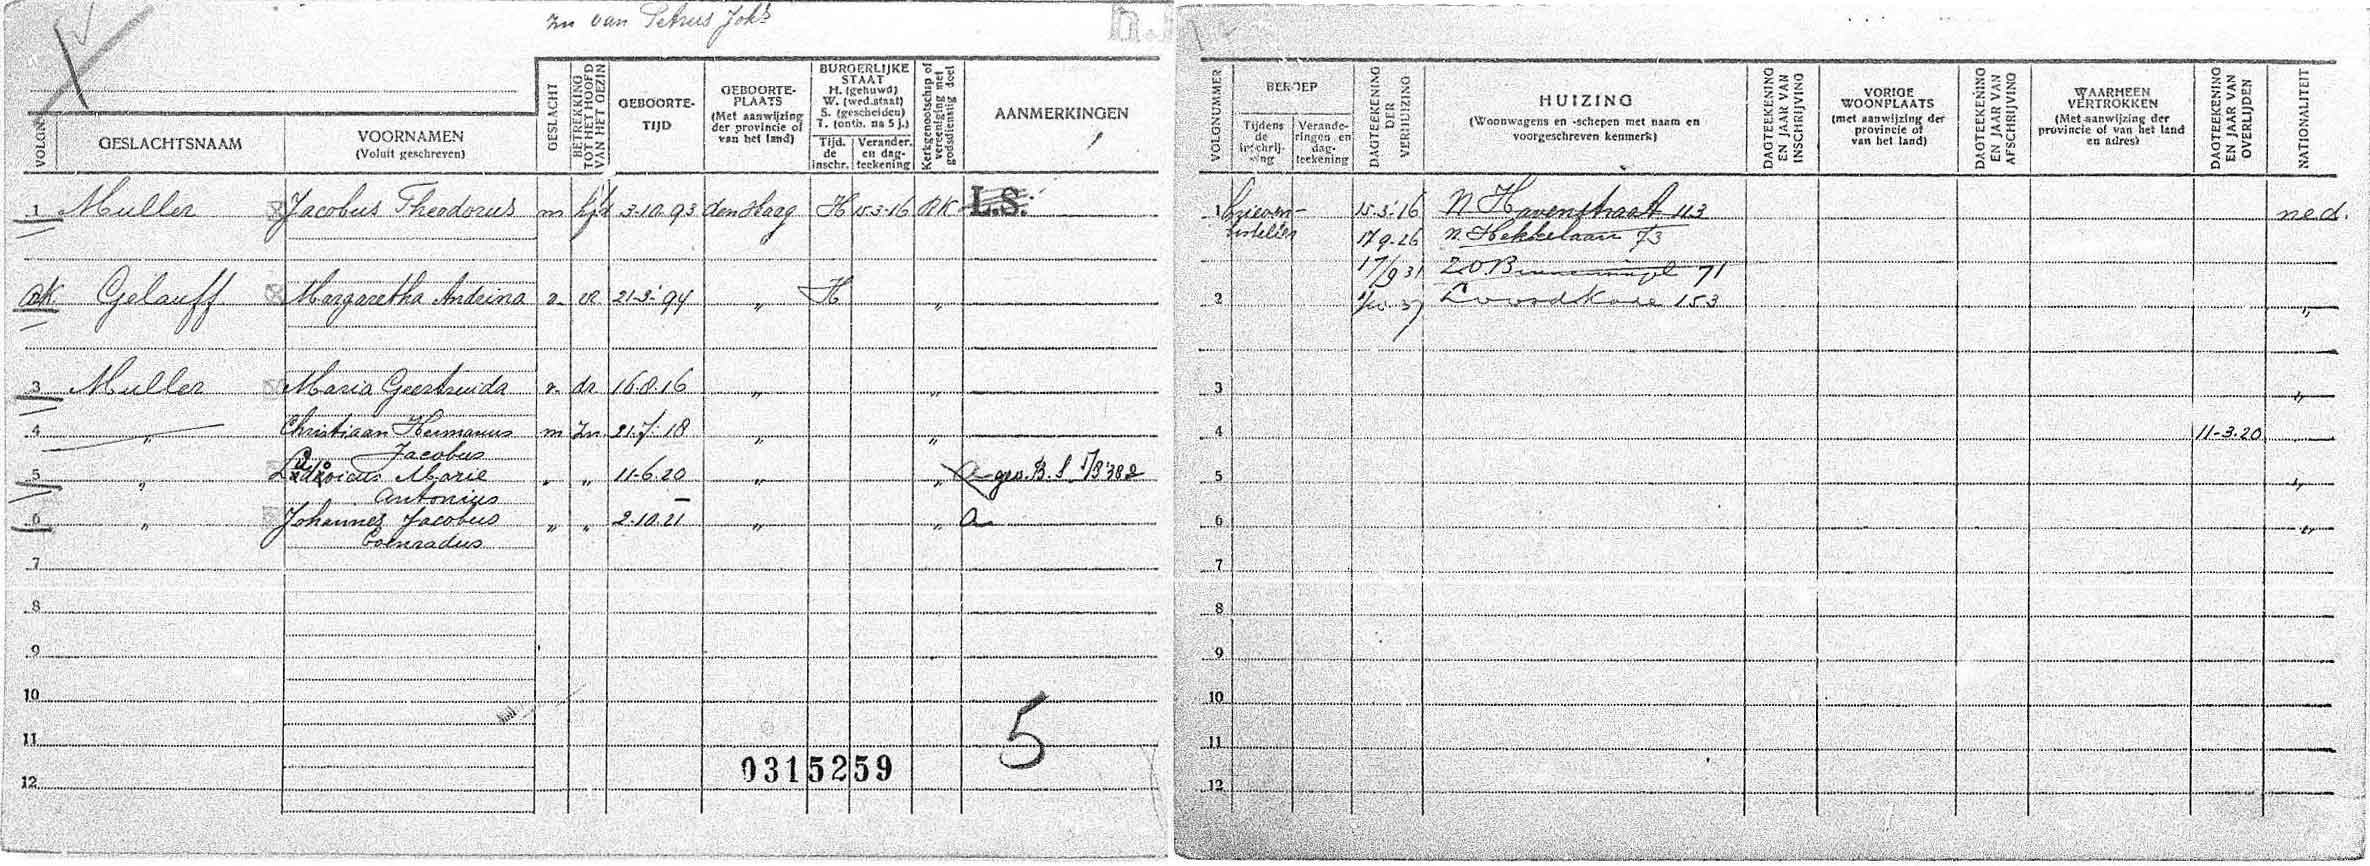 zn van Petrus Joh
VOLGN
GESLACHTSNAAM
VOORNAMEN
(Voluit geschreven)
GESLACHT
BETREKKING
TOT HET HOOFD
VAN HET GEZIN
GEBOORTE-
TIJD
GEBOORTE-
PLAATS
(Met aanwijzing
der provincie of
van het land)
BURGERLIJKE
STAAT
H. (gehuwd)
W. (wed.staat)
S. (gescheiden)
T. (ontb. na 5 j.)
Tijd.
de
inschr.
Verander.
en dag-
teekening
Kerkgenootschap of
vereeniging met
godsdienstig doel
AANMERKINGEN
1 Muller Jacobus Theodorus m hfd 3-10-93 den Haag H 15-3-16 RK L.S.
RK Gelauff Margaretha Andrina v. 21-3-94 " H "
3 Muller Maria Geertruida v. dr 16-8-16 " "
4 " Christiaan Hermanus m zn 21-7-18 " "
Jacobus
5 " Ludovicus Marie " " 11-6-20 " "
Antonius
6 " Johannes Jacobus " " 2-10-21 " "
Coenradus
7
8
9
10
11
12
0315259
5
VOLGNUMMER
BEROEP
Tijdens
de
inschrij-
ving
Verande-
ringen en
dag-
teekening
DAGTEEKENING
DER
VERHUIZING
HUIZING
(Woonwagens en -schepen met naam en
voorgeschreven kenmerk)
DAGTEEKENING
EN JAAR VAN
INSCHRIJVING
VORIGE
WOONPLAATS
(met aanwijzing der
provincie of
van het land)
DAGTEEKENING
EN JAAR VAN
AFSCHRIJVING
WAARHEEN
VERTROKKEN
(Met aanwijzing der
provincie of van het land
en adres)
DAGTEEKENING
EN JAAR VAN
OVERLIJDEN
NATIONALITEIT
1 brieven- 15-3-16 N Havenstraat 113 ned.
besteller 17-9-26 n. Hekkelaan 73
17/9 31 Z.O.B 71
2 153 "
3 "
4 11-3-20
5 "
6 "
7
8
9
10
11
12